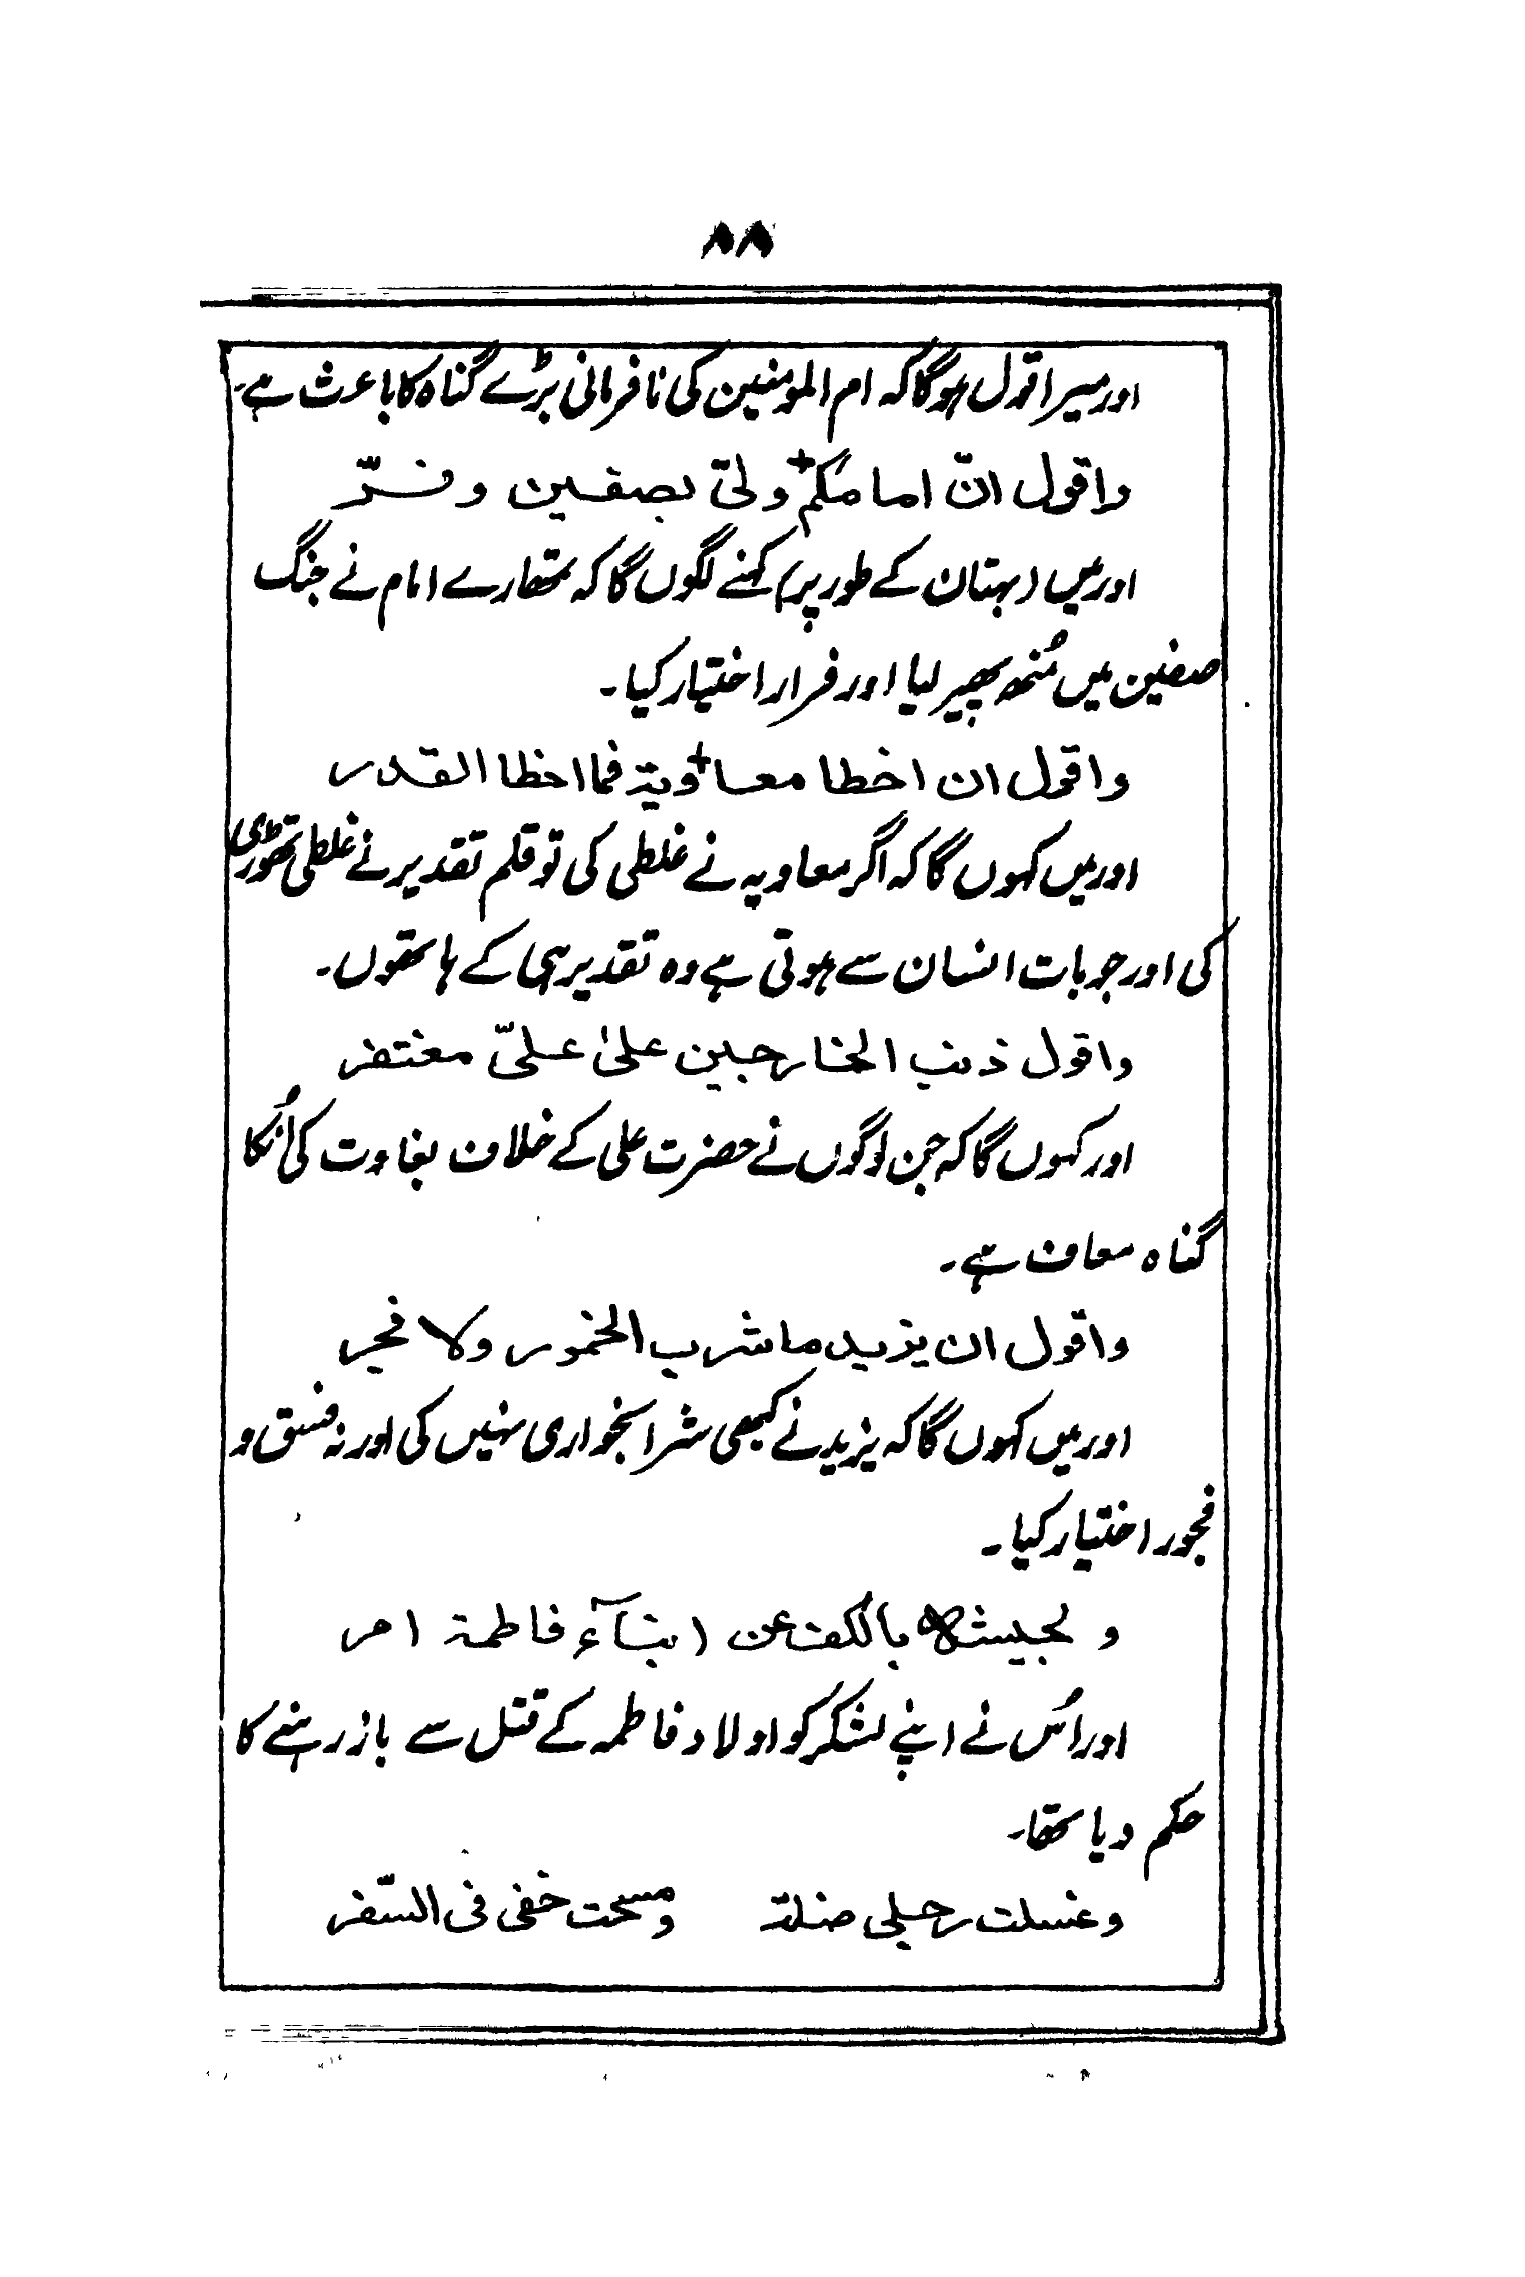 ۸۸
اور میرا قول ہوگا کہ ام المومنین کی نافرمانی بڑے گناہ کا باعث ہے۔
واقول انّ امامکم ولیّ بصفین وفرّ
اور میں (بہتان کے طور پر) کہنے لگوں گا کہ تمھارے امام نے جنگ
صفین میں مُنھ پھیر لیا اور فرار اختیار کیا۔
واقول ان اخطا معاویة فما اخطا القدر
اور میں کہوں گا کہ اگر معاویہ نے غلطی کی تو قلم تقدیر نے غلطی تھوڑی
کی اور جو بات انسان سے ہوتی ہے وہ تقدیر ہی کے ہاتھوں۔
واقول ذنب الخارجین علیٰ علیّ مغتفر
اور کہوں گا کہ جن لوگوں نے حضرت علی کے خلاف بغاوت کی اُنکا
گناہ معاف ہے۔
واقول ان یزید ما شرب الخمور ولا فجر
اور میں کہوں گا کہ یزید نے کبھی شرابخواری نہیں کی اور نہ فسق و
فجور اختیار کیا۔
و لجیشہ بالکف عن ابنآء فاطمة امر
اور اُس نے اپنے لشکر کو اولاد فاطمہ کے قتل سے باز رہنے کا
حکم دیا تھا۔
وغسلت رجلی ضلة ومسحت خفی فی السّفر